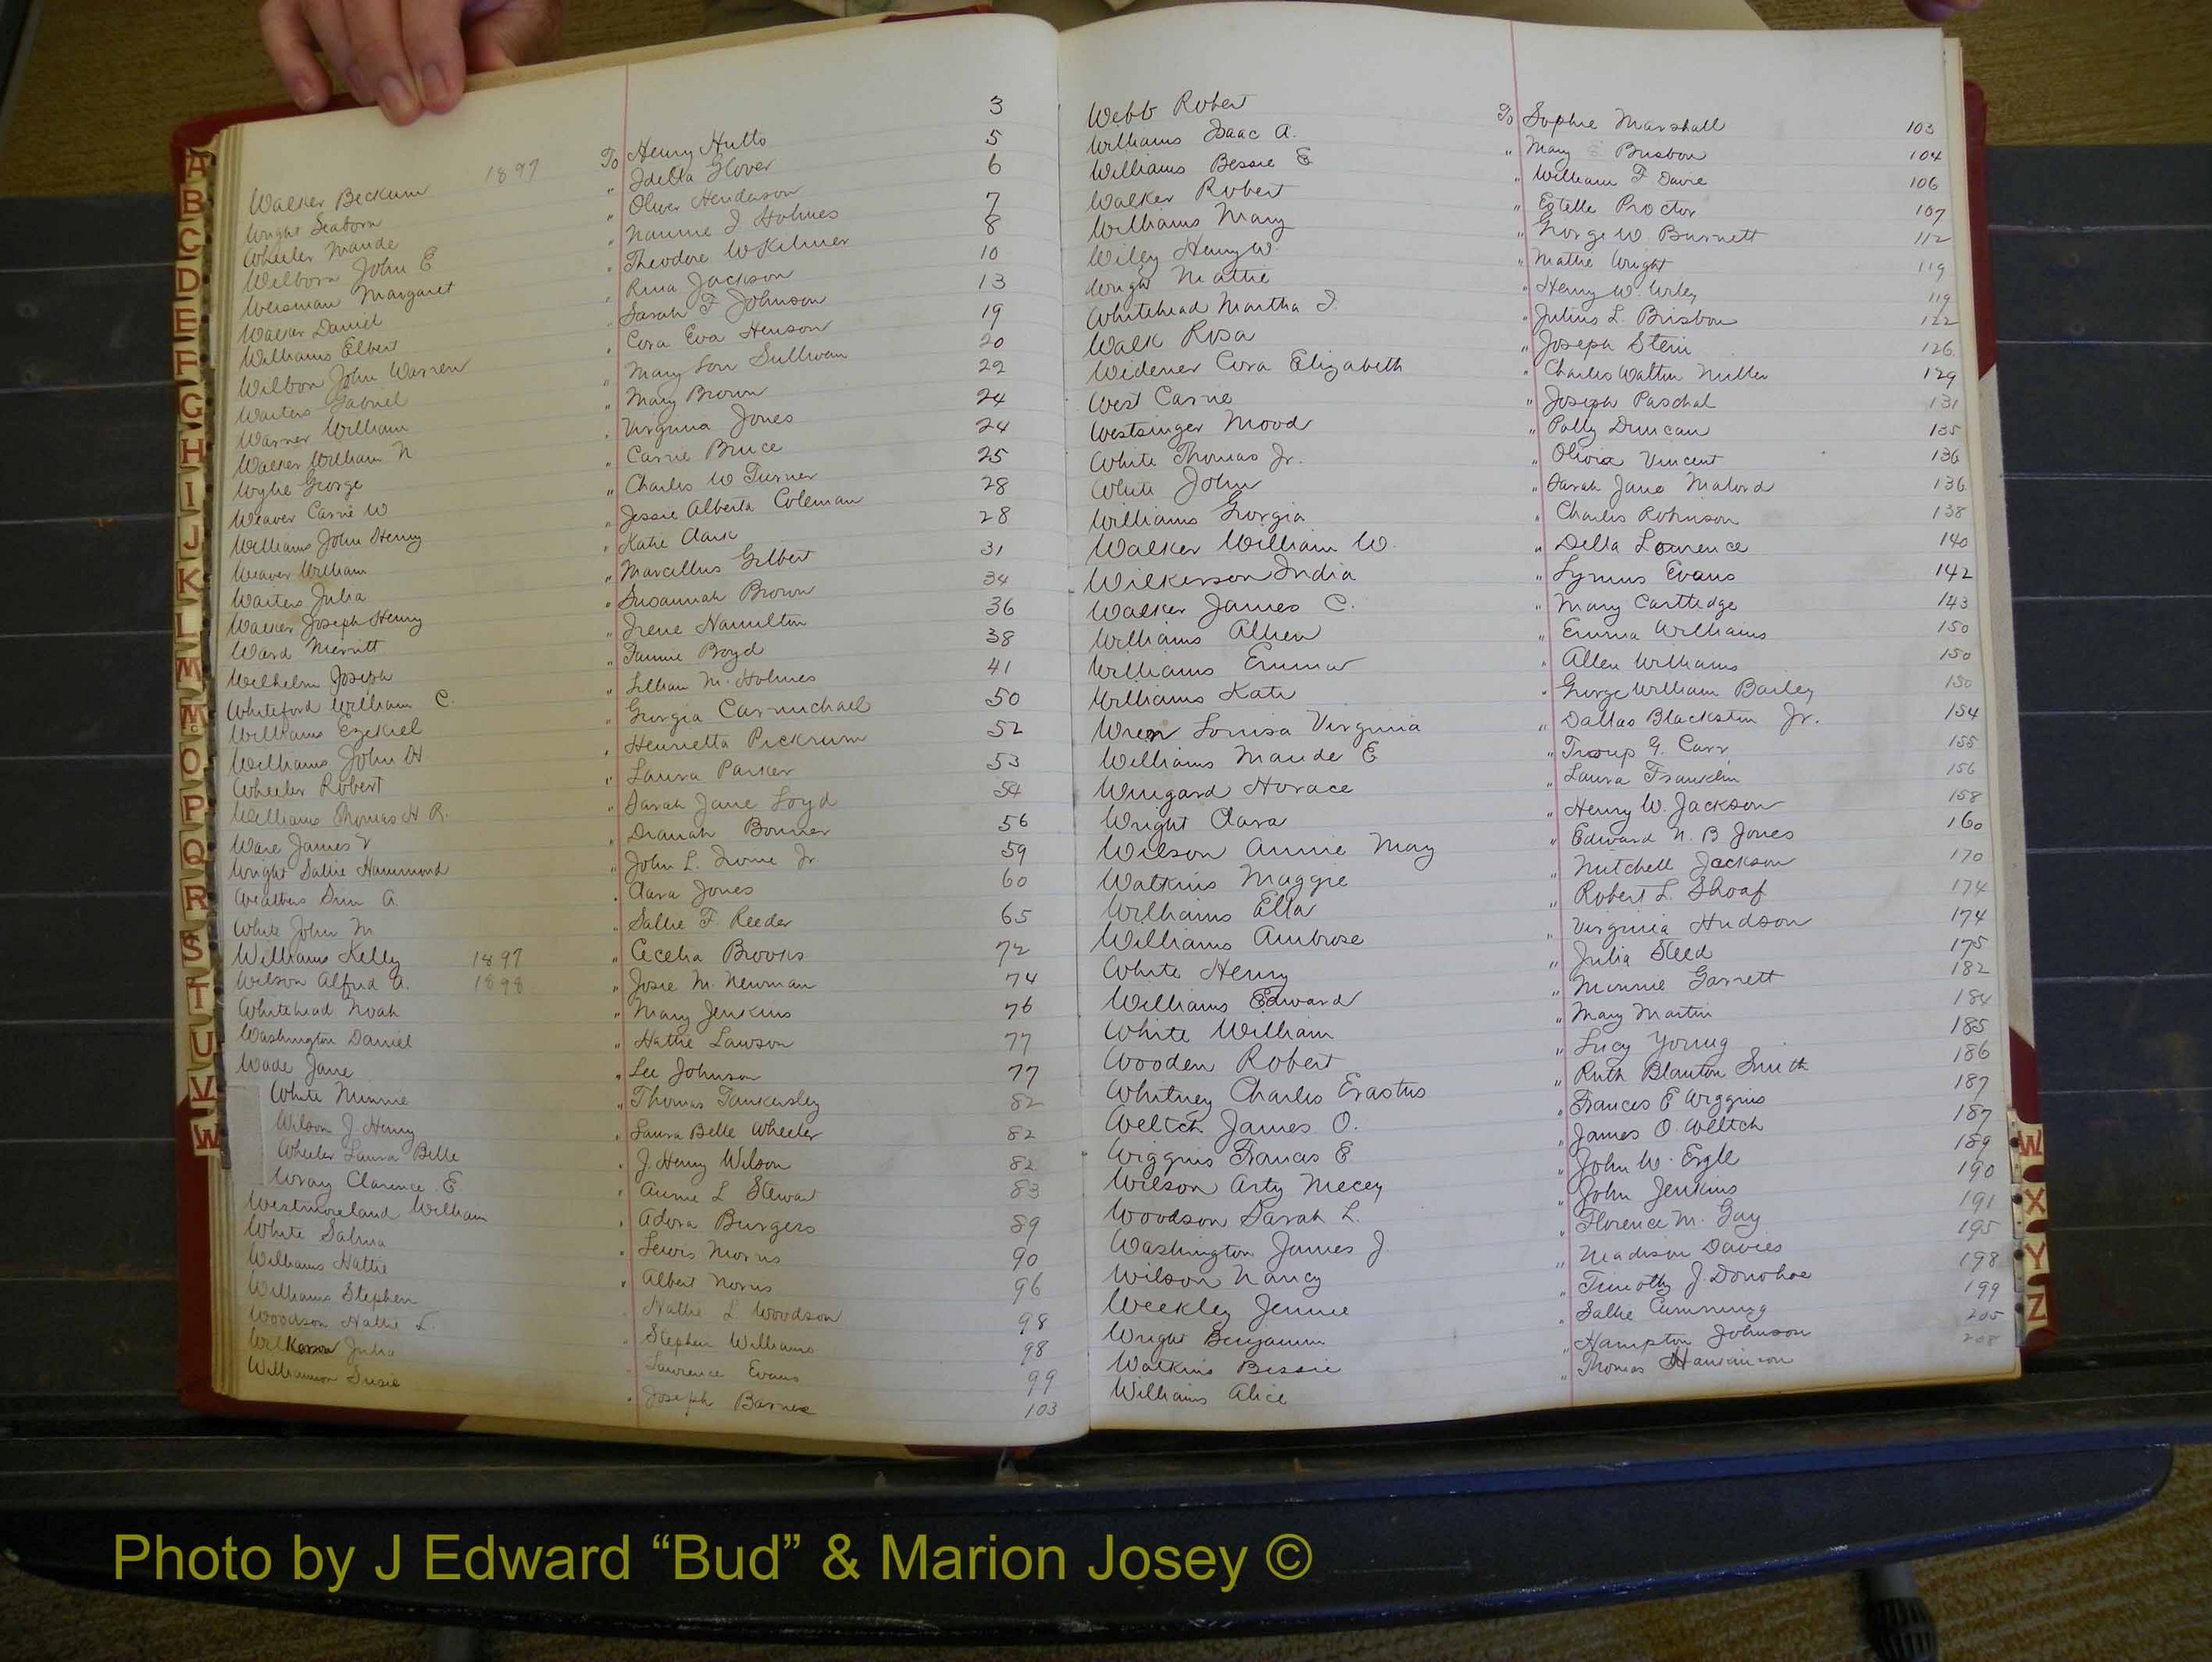 1897
Walker Beckum To Henry Hutto 3
Wright Seaborn " Idella Glover 5
Wheeler Maude " Oliver Henderson 6
Welborn John E " Nannie I Holmes 7
Weisman Margaret " Theodore W Kilmer 8
Walker Daniel " Rina Jackson 10
Williams Elbert " Sarah F Johnson 13
Wilbon John Warren " Cora Eva Henson 19
Waiters Gabriel " Mary Lou Sullivan 20
Warner William " Mary Brown 22
Walker William N " Virginia Jones 24
Wylie George " Carrie Bruce 24
Weaver Carrie W " Charles W Turner 25
Williams John Henry " Jessie Alberta Coleman 28
Weaver William " Katie Clark 28
Waiters Julia " Marcellus Gilbert 31
Walker Joseph Henry " Susannah Brown 34
Ward Merritt " Irene Hamilton 36
Wilhelm Joseph " Fannie Boyd 38
Whiteford William C. " Lillian M. Holmes 41
Williams Ezekiel " Georgia Carmichael 50
Williams John H " Henrietta Pickrum 52
Wheeler Robert " Laura Parker 53
Williams Thomas H R. " Sarah Jane Loyd 54
Ware James " Dianah Bonner 56
Wright Sallie Hammond " John L. Jr 59
Weathers A. " Clara Jones 60
White John M. " Sallie F. Reeder 65
Williams Kelly 1897 " Cecelia Brooks 72
Wilson Alfred A. 1898 " Josie M. Newman 74
Whitehead Noah " Mary Jenkins 76
Washington Daniel " Hattie Lawson 77
Wade Jane " Lee Johnson 77
White Minnie " Thomas Tankersley 82
Wilson J Henry " Laura Belle Wheeler 82
Wheeler Laura Belle " J. Henry Wilson 82
Wray Clarence E " Annie L Stewart 83
Westmoreland William " Adora Burgess 89
White Salina " Lewis Morris 90
Williams Hattie " Albert Norris 96
Williams Stephen " Hattie L Woodson 98
Woodson Hattie L. " Stephen Williams 98
Wilkerson Julia " Lawrence Evans 99
Williamson Susie " Joseph Barnes 103
Webb Robert To Sophie Marshall 103
Williams Isaac A. " Mary Brisbon 104
Williams Bessie E " William F Davie 106
Walker Robert " Estelle Proctor 107
Williams Mary " George W. Burnett 112
Wiley Henry W. " Mattie Wright 119
Wright Mattie " Henry W. Wiley 119
Whitehead Martha I. " Julius L. Brisbon 122
Walk Rosa " Joseph Stein 126
Widener Cora Elizabeth " Charles Walton Miller 129
West Carrie " Joseph Paschal 131
Westsinger Mood " Polly Duncan 135
White Thomas Jr. " Olivia Vincent 136
White John " Sarah Jane Malord 136
Williams Georgia " Charles Robinson 138
Walker William W. " Della Lawrence 140
Wilkerson India " Lymus Evans 142
Walker James C. " Mary Carttedge 143
Williams Allen " Emma Williams 150
Williams Emma " Allen Williams 150
Williams Kate " George William Bailey 150
Wren Louisa Virginia " Dallas Blackston Jr. 154
Williams Maude E " Troup G. Carr 155
Wingard Horace " Laura Franklin 156
Wright Clara " Henry W. Jackson 158
Wilson Annie May " Edward N. B Jones 160
Watkins Maggie " Mitchell Jackson 170
Williams Ella " Robert L. Shoaf 174
Williams Ambrose " Virginia Hudson 174
White Henry " Julia Steed 175
Williams Edward " Minnie Garrett 182
White William " Mary Martin 184
Wooden Robert " Lucy Young 185
Whitney Charles Erastus " Ruth Blanton Smith 186
Weltch James O. " Frances E Wiggins 187
Wiggins Frances E. " James O. Weltch 187
Wilson Arty Mecey " John W. Ergle 189
Woodson Sarah L. " John Jenkins 190
Washington James J. " Florence M. Gay 191
Wilson Nancy " Madison Davies 195
Weekley Jennie " Timothy J. Donohoe 198
Wright Benjamin " Sallie Cumming 199
Watkins Bessie " Hampton Johnson 205
Williams Alice " Thomas Hankinson 208
A
B
C
D
E
F
G
H
I
J
K
L
M
Mc
O
P
Q
R
S
T
U
V
W
W
X
Y
Z
Photo by J Edward “Bud” & Marion Josey ©